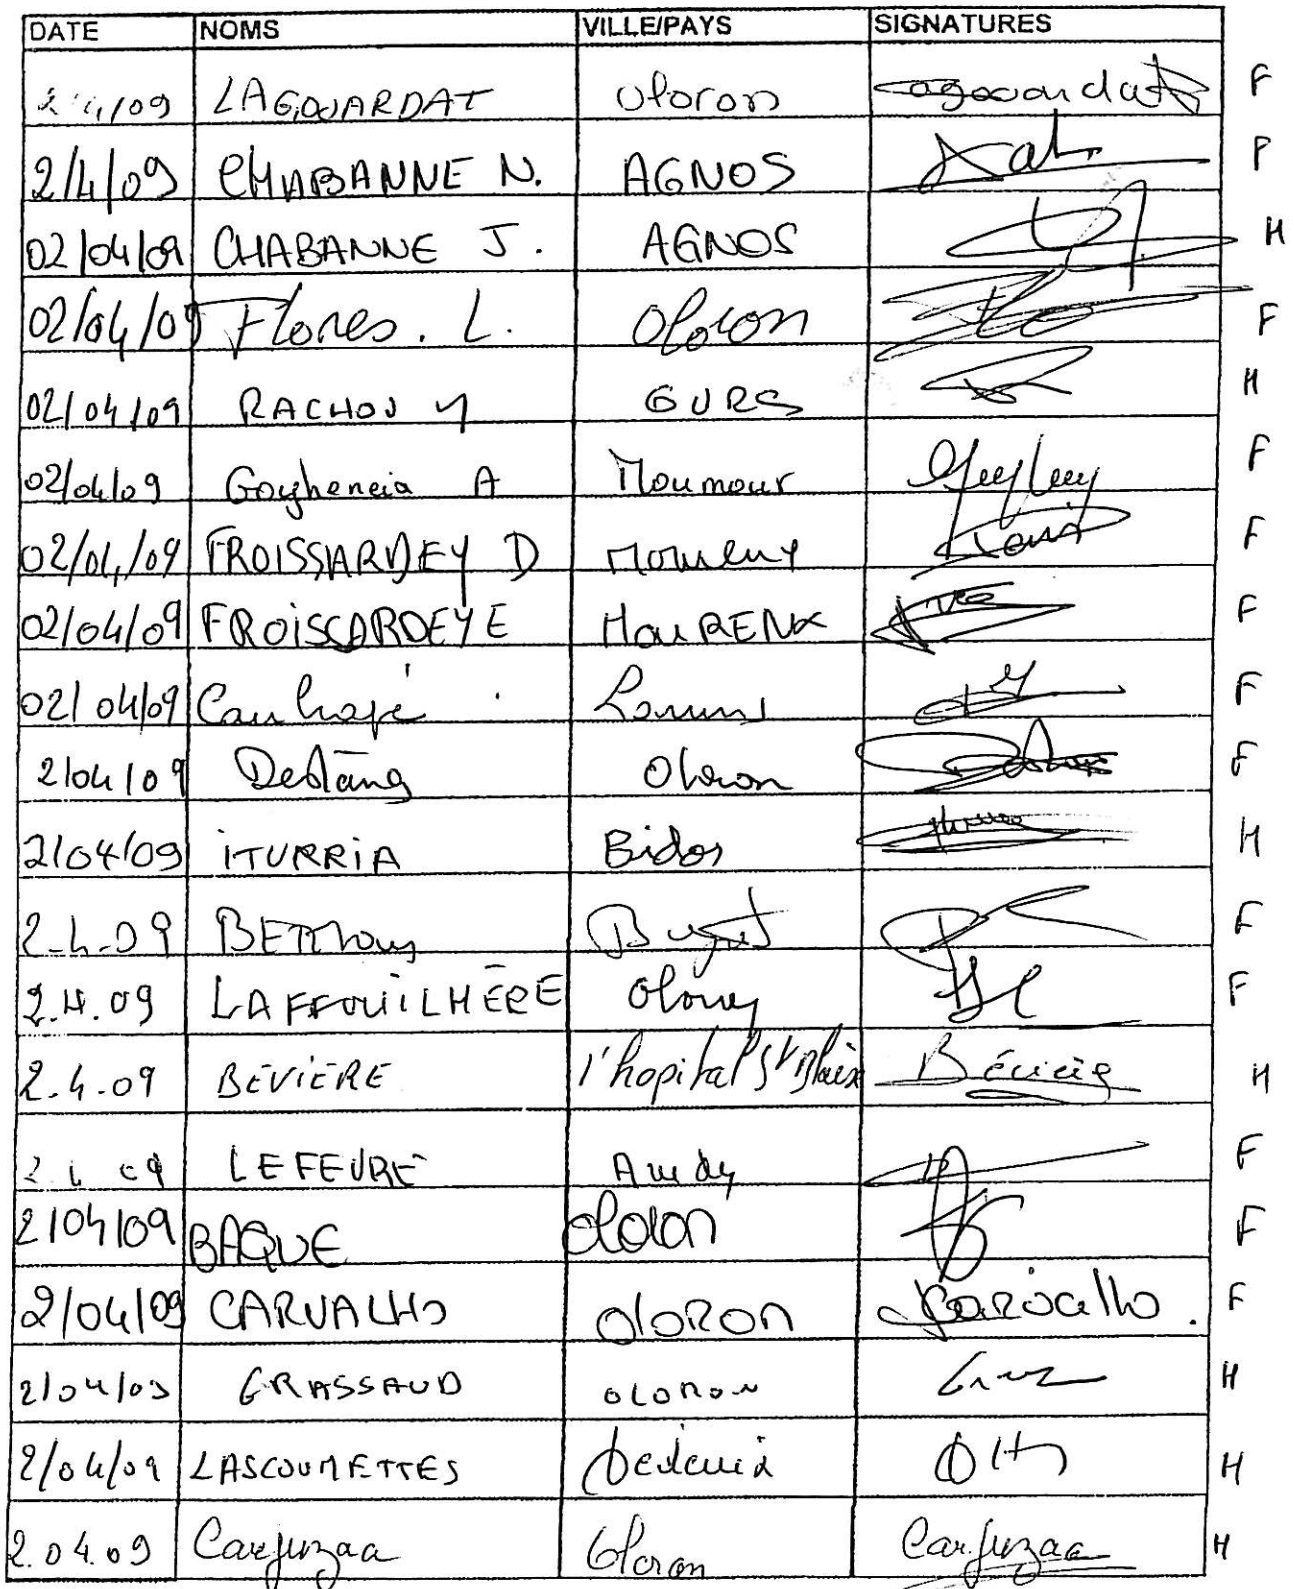 DATE NOMS VILLE/PAYS SIGNATURES
2/4/09 LAGOUARDAT Oloron Lagouardat F
2/4/09 CHABANNE N. AGNOS F
02/04/09 CHABANNE J. AGNOS H
02/04/09 Flores. L. Oloron F
02/04/09 RACHOU Y GURS H
02/04/09 Goyheneia A Moumour F
02/04/09 FROISSARDEY D F
02/04/09 FROISSARDEYE MouRENX F
02/04/09 Canhapé F
2/04/09 Destang Oloron F
2/04/09 iTURRiA Bidos H
2-4-09 F
2.4.09 LAFFOUiLHÈRE F
2.4.09 BEVIÈRE l'hopital St Blaix Bévière H
09 LEFEVRE F
2/04/09 BAQUE Oloron F
2/04/09 CARVALHO OloRon Carvalho. F
2/04/09 GRASSAUD OLORON H
2/04/09 LASCOUMETTES H
2.04.09 Carjuzaa Oloron Carjuzaa H